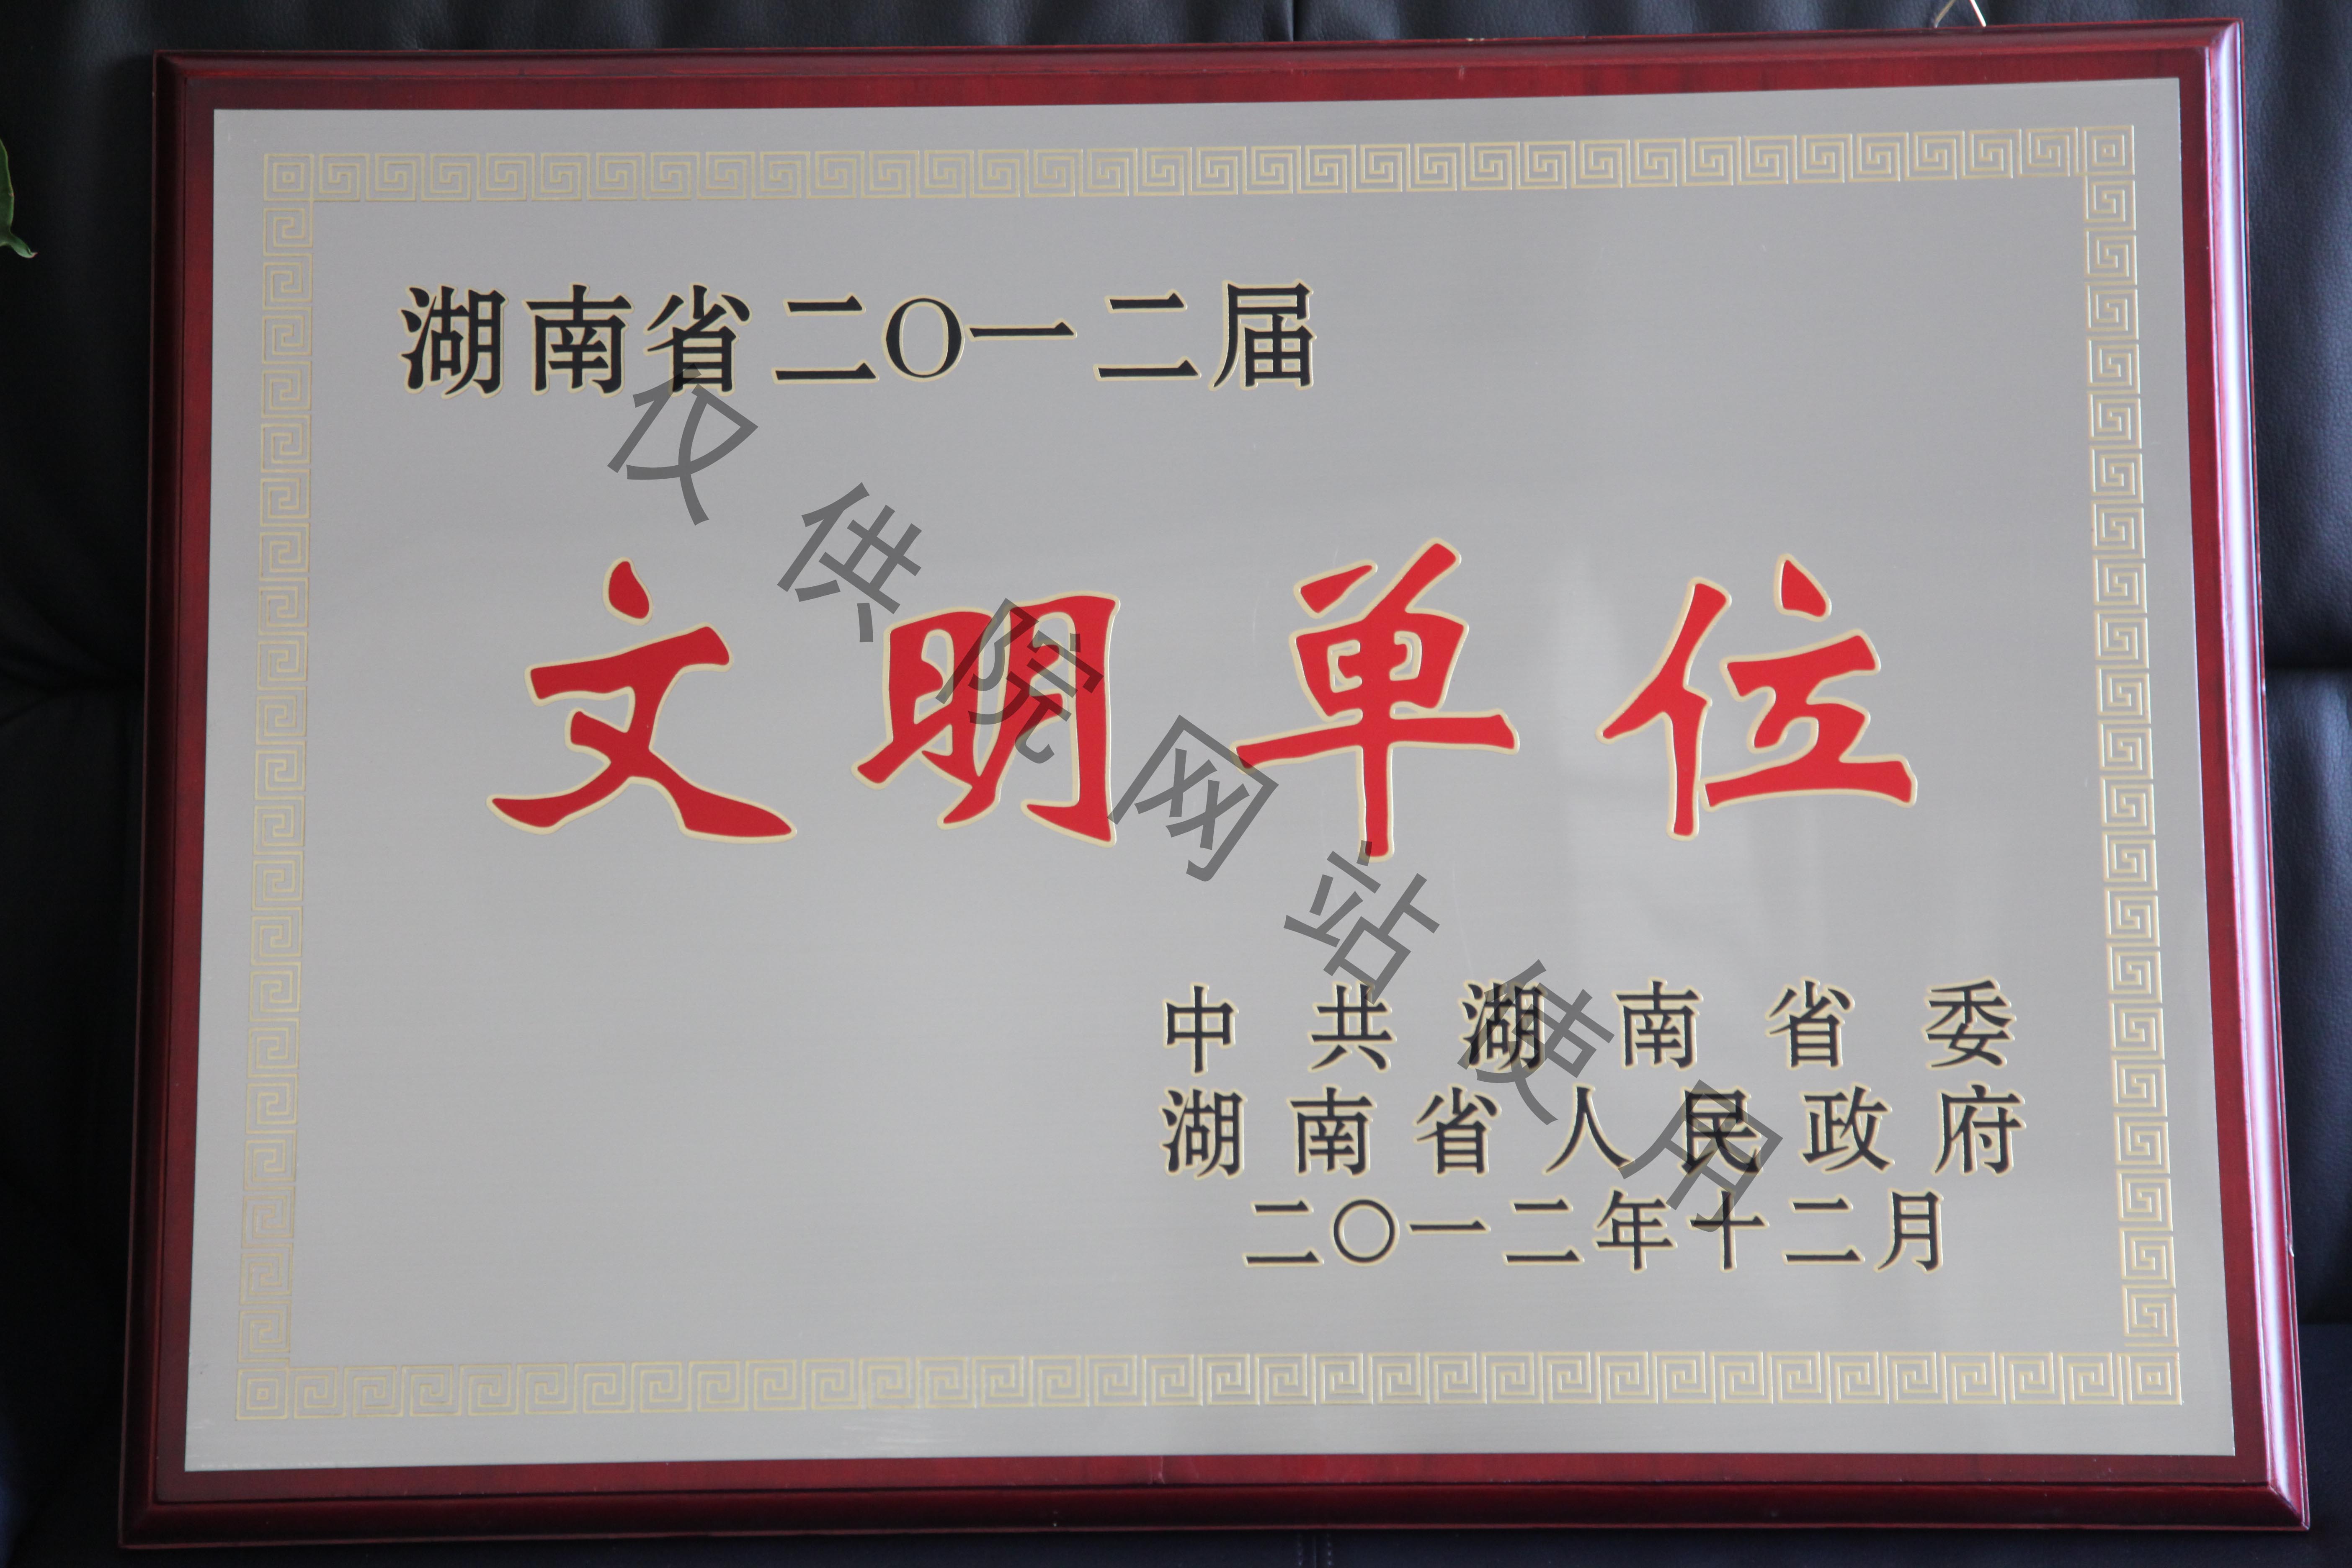 湖南省二〇一二届
文明单位
中共湖南省委
湖南省人民政府
二〇一二年十二月
仅供院网站使用